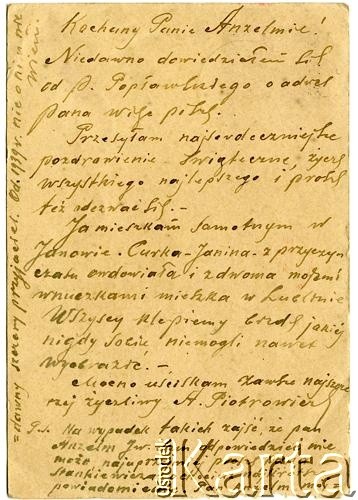 Kochany Panie Anzelmie!
Niedawno dowiedziełem się
od p. Popławskiego o adres
pana więc piszę.
Przesyłam najserdeczniejsze
pozdrowienie świąteczne życzę
wszystkiego najlepszego i proszę
też odezwać się. -
Ja mieszkam samotnym w
Janowie. Curka - Janina - z przyczyn
czasu owdowiała i z dwoma możemi
wnuczkami mieszka w Lublinie
Wszyscy klepiemy biedę jakiej
nigdy sobie niemogli nawet
wyobrazić. -
Mocno uściskam zawsze najszcze
rzej życzliwy A. Piotrowicz
P.S. Na wypadek takich zajść, że pan
Anzelm Iw. odpowiedzieć nie
może najuprz. p.
Stankiewicza
powiadomi
= dawny szczery przyjaciel. Od 1939 r. nic o nim nie
wiem.
Ośrodek
Karta